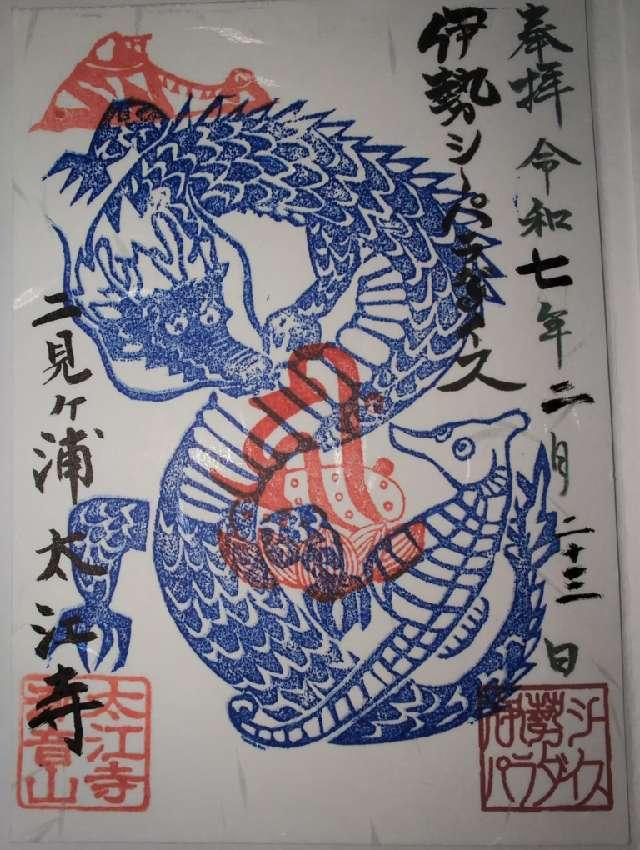 奉拝 令和七年二月二十三日
伊勢シーパラダイス
二見ヶ浦 太江寺
太江寺
伊勢シー
パラダイス